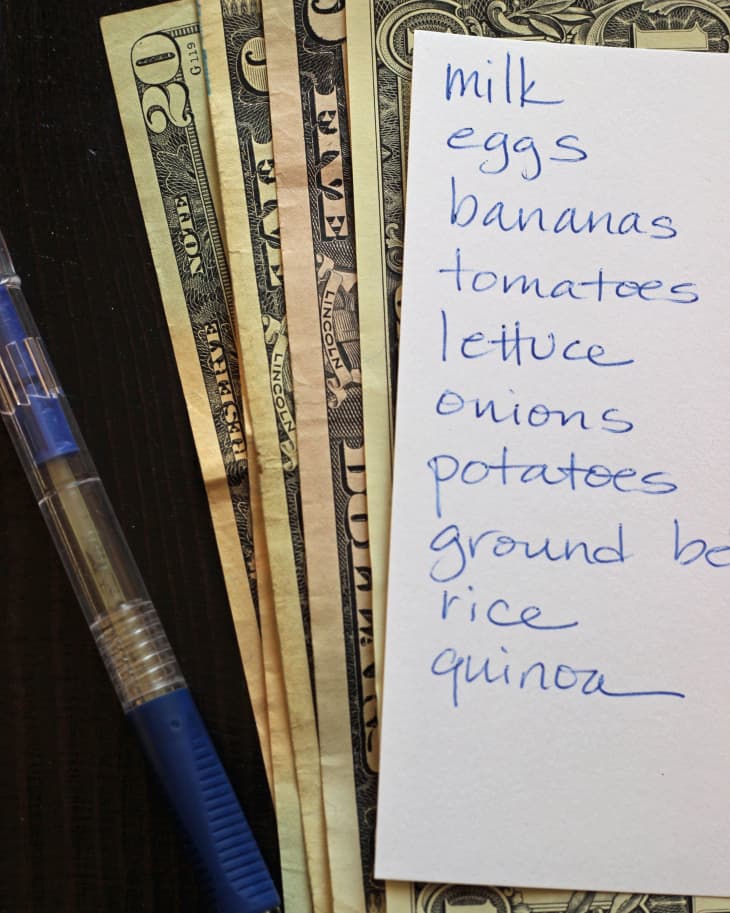 20
G119
NOTE
RESERVE
LINCOLN
FIVE
LINCOLN
milk
eggs
bananas
tomatoes
lettuce
onions
potatoes
ground be
rice
quinoa